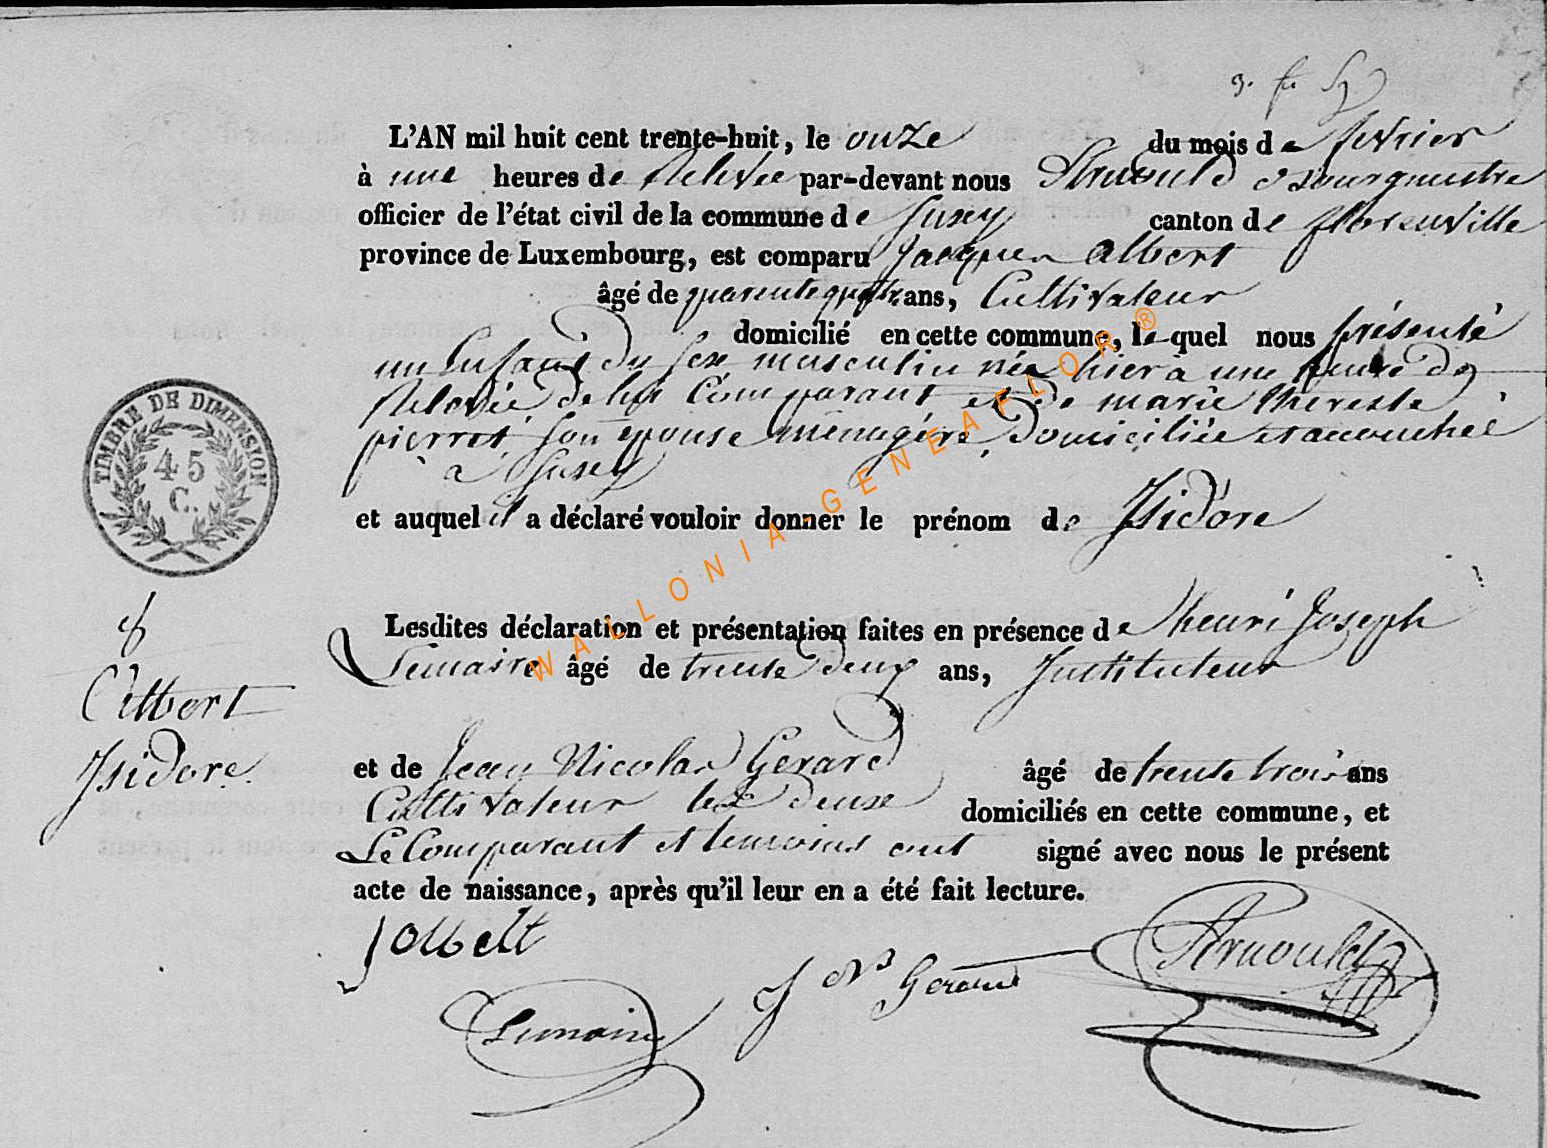 L'AN mil huit cent trente-huit, le onze du mois de fevrier
à une heures de Relevée par-devant nous Arnould Bourgmestre
officier de l'état civil de la commune de Suxy canton de florenville
province de Luxembourg, est comparu Jacques Albert
âgé de quarente quatre ans, Cultivateur
domicilié en cette commune, le quel nous présenté
un Enfant du sex masculin née hier à une heure de
Relevée de lui Comparant et de marie thereste
pierret son epouse ménagére, domiciliée et accouchée
à Suxy
et auquel il a déclaré vouloir donner le prénom de Isidore
TIMBRE DE DIMENSION
45
C.
8
Albert
Isidore
Lesdites déclaration et présentation faites en présence de henri Joseph
Lemaire âgé de trente deux ans, Instituteur
et de Jean Nicolas Gerard âgé de trente trois ans
Cultivateur les deux domiciliés en cette commune, et
Le Comparant et temoins ont signé avec nous le présent
acte de naissance, après qu'il leur en a été fait lecture.
J Albert
J Ns Gerard
Arnould
Lemaire
WALLONIA-GENEAFLOR®